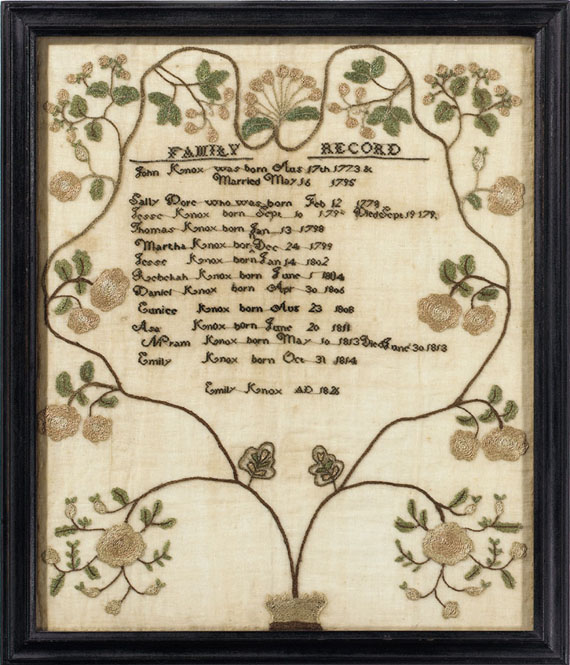 FAMILY RECORD
John Knox was born Aug 17th 1773 &
Married May 16 1795
Sally Dore who was born Feb 12 1778
Jesse Knox born Sept 10 Died Sept 19 179
Thomas Knox born Jan 13 1798
Martha Knox born Dec 24 1799
Jesse Knox born Jan 14 1802
Rebekah Knox born June 1 1804
Daniel Knox born Apr 30 1806
Eunice Knox born Aug 23 1808
Asa Knox born June 20 1811
Knox born May 10 1813 Died June 30 1813
Emily Knox born Oct 31 1814
Emily Knox AD 1826